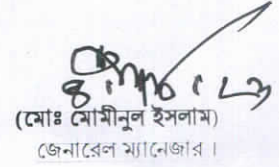 (মোঃ মোমীনুল ইসলাম)
জেনারেল ম্যানেজার।